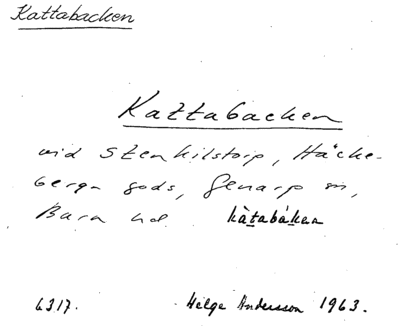 Kattabacken
Kattabacken
vid Stenkilstorp, Häcke-
berga gods, Genarp sn,
Bara hd kàtabákan
6317. Helge Andersson 1963.